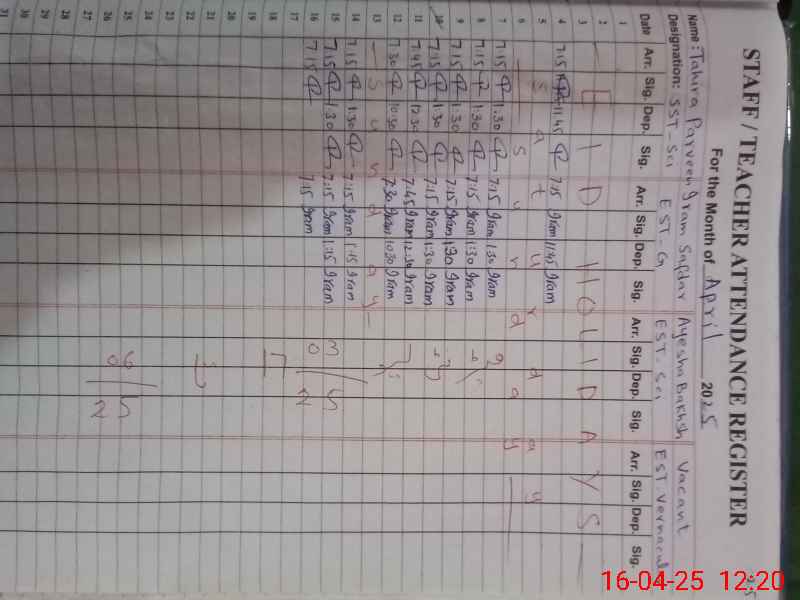 STAFF / TEACHER ATTENDANCE REGISTER
For the Month of April 2025
Name: Tahira Parveen Iram Safdar Ayesha Bakhsh Vacant
Designation: SST-Sci EST-G EST-Sci EST-Vernacul
Date Arr. Sig. Dep. Sig. Arr. Sig. Dep. Sig. Arr. Sig. Dep. Sig. Arr. Sig. Dep. Sig.
1
2
3 EID HOLIDAYS
4 7:15 11:45 7:15 Iram 11:45 Iram
5 Saturday
6 Sunday
7 7:15 1:30 7:15 Iram 1:30 Iram
8 7:15 1:30 7:15 Iram 1:30 Iram
9 7:15 1:30 7:15 Iram 1:30 Iram
10 7:15 1:30 7:15 Iram 1:30 Iram
11 7:45 12:30 7:45 Iram 12:30 Iram
12 7:30 10:30 7:30 Iram 10:30 Iram
13 Sunday
14 7:15 1:30 7:15 Iram 1:15 Iram
15 7:15 1:30 7:15 Iram 1:15 Iram
16 7:15 7:15 Iram
03
25
17
18
19
20
21
22
23
24
06
25
25
26
27
28
29
30
31
16-04-25 12:20